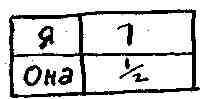 Я 1
Она 1/2